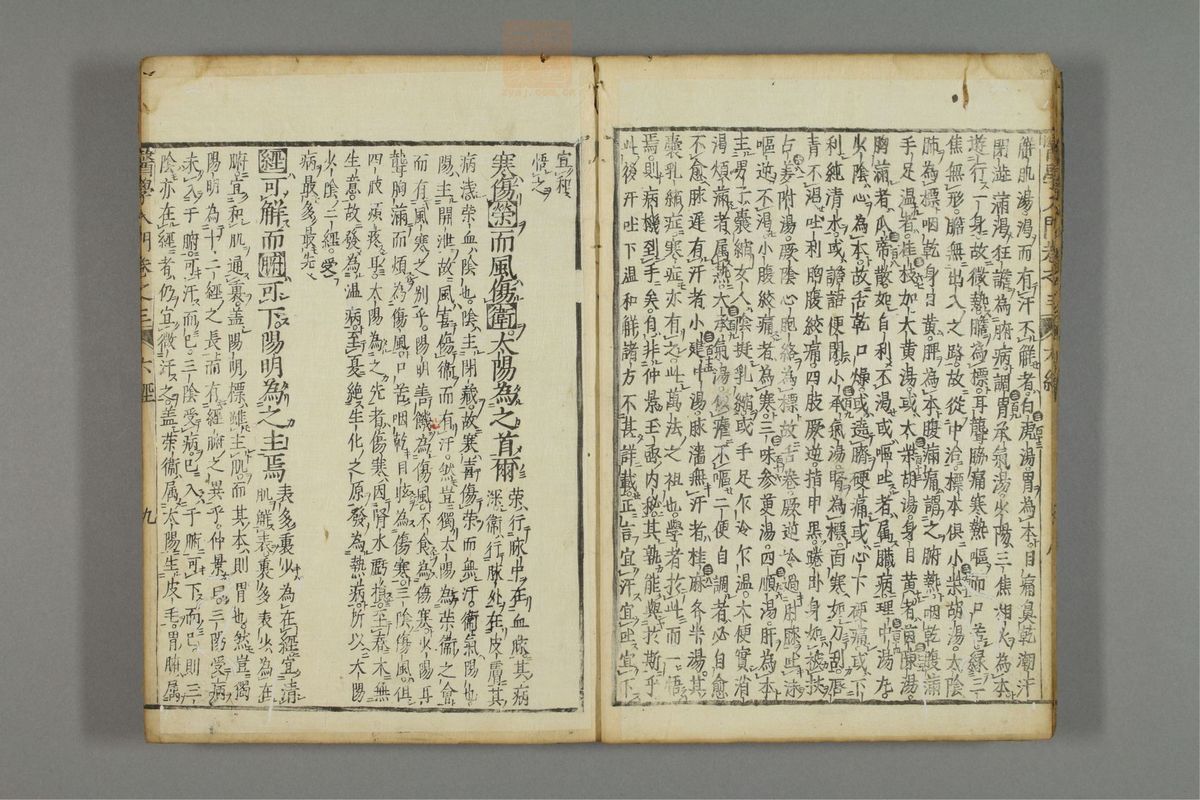 解肌湯渴而有汗不解者白虎湯胃為本目痛鼻乾潮汗
閉澁滿渴狂譫為腑病調胃承氣湯少陽三焦相火為本
遊行一身故微熱膽為標耳聾脇痛寒熱嘔而口苦緣三
焦無形膽無出入之路故從中治標本俱小柴胡湯太陰
肺為標咽乾身目黄脾為本腹滿痛謂之腑熱咽乾腹滿
手足温者桂枝加大黄湯或大柴胡湯身目黄者茵陳湯
胸滿者瓜帝散如自利不渴或嘔吐者属臓病理中湯少
陰心為本故舌乾口燥或遶臍硬痛或心下硬痛或下
利純清水或譫語便閉小承氣湯腎為標面寒如刀刮唇
青不渴吐利胸腹絞痛四肢厥逆指甲黒踡卧身如被杖
古姜附湯厥陰心胞絡為標故舌卷厥逆冷過肘膝吐沫
嘔逆不渴小腹絞痛者為寒三味參萸湯四順湯肝為本
主男子囊縮女人陰挺乳縮或手足乍冷乍温大便實消
渴煩滿者属熱大承氣湯似瘧不嘔二便自調者必自愈
不愈脉遅有汗者小建中湯脉濇無汗者桂麻各半湯其
囊乳縮症寒症亦有之此萬法之祖也學者於此而一悟
焉則病機到手矣自非仲景玉函内秘其孰能與於斯乎
此後汗吐下温和解諸方不其詳載正言宜汗宜吐宜下
宜和
悟之
寒傷榮而風傷衛太陽為之首爾
榮行脉中在血脉其病
深衛行脉外在皮膚其
病淺榮血陰也陰主閉藏故寒喜傷榮而無汗衛氣陽也
陽主開泄故風喜傷衛而有汗然豈獨太陽為榮衛之會
而有風寒之別乎陽明善饑為傷風不食為傷寒少陽耳
聾胸滿而煩為傷風口苦咽乾目眩為傷寒三陰傷風俱
四肢煩疼耳太陽為之先者傷寒因腎水虧損至春木無
生意故發為温病至夏絶生化之原發為熱病所以太陽
少陰二經受
病最多最先
經可解而腑可下陽明為之主焉
表多裏少為在經宜清
肌解表裏多表少為在
腑宜和肌通裏盖陽明標雖主肌而其本則胃也然豈獨
陽明為十二經之長而有經腑之異乎仲景曰三陽受病
未入于腑可汗而已三陰受病已入于腑可下而已則三
陰亦在經者仍宜微汗之盖榮衛属太陽主皮毛胃腑属
醫學入門 卷之三 六經 九